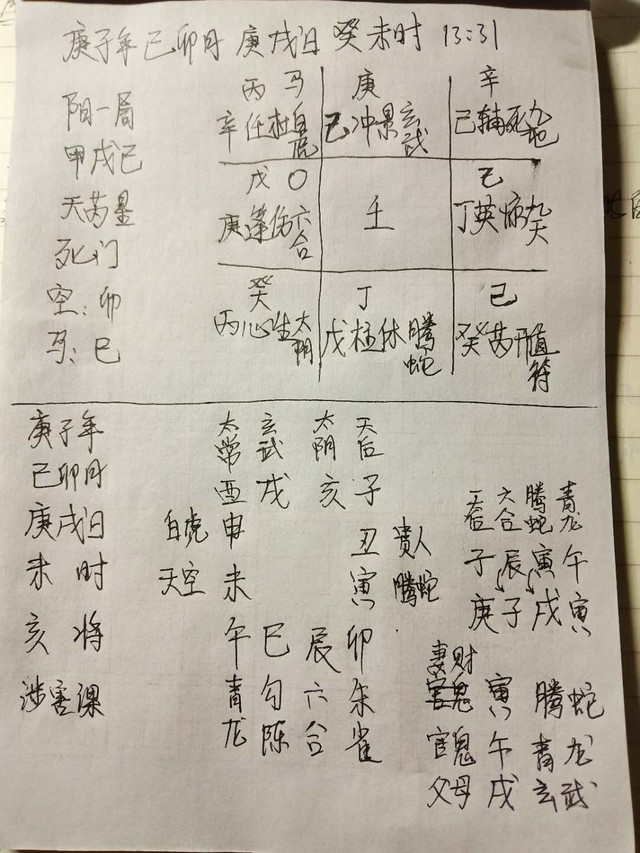 庚子年 己卯月 庚戌日 癸未时 13:31
阳一局
甲戌己
天芮星
死门
空:卯
马:巳
丙 马
辛任杜白虎
庚
己冲景玄武
辛
己辅死九地
戊 〇
庚蓬伤六合
壬
乙
丁英惊九天
癸
丙心生太阴
丁
戊柱休腾蛇
己
癸芮开值符
庚子年
己卯月
庚戌日
未 时
亥 将
涉害课
太常 玄武 太阴 天后
酉 戌 亥 子
白虎 申 丑 贵人
天空 未 寅 腾蛇
午 巳 辰 卯
青龙 勾陈 六合 朱雀
六合 腾蛇 青龙
子 辰 寅 午
庚 子 戌 寅
妻财 寅 腾蛇
官鬼 午 青龙
父母 戌 玄武